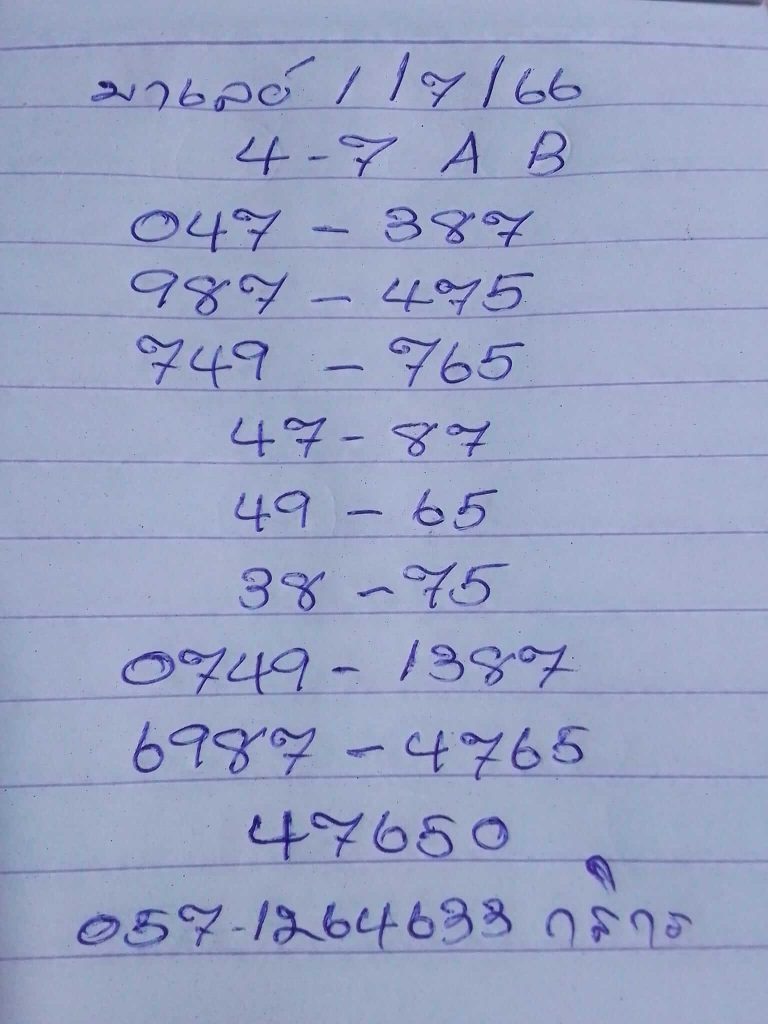 มาเลย์ 1/7/66
4-7 A B
047 - 387
987 - 475
749 - 765
47 - 87
49 - 65
38 - 75
0749 - 1387
6987 - 4765
47650
057-1264633